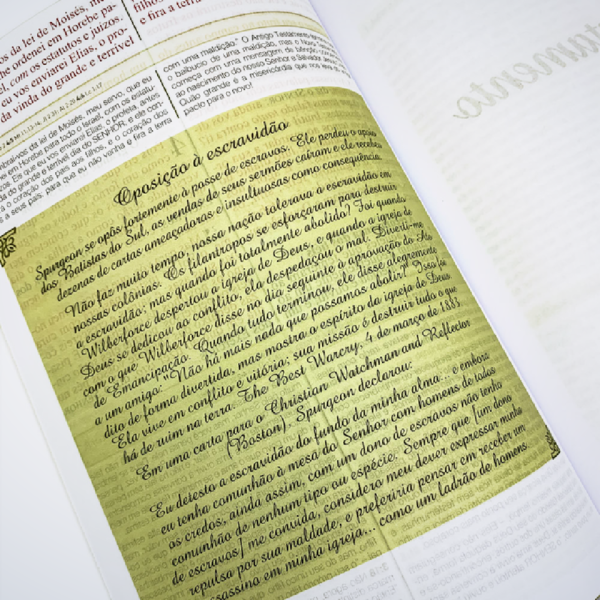 os da lei de Moisés, m
he ordenei em Horebe pa
el, com os estatutos e juízos.
eu vos enviarei Elias, o pro-
da vinda do grande e terrível
filhos
e fira a terra
da lei de Moisés, meu servo, que eu
em Horebe para todo o Israel, com os estatu-
Eis que eu vos enviarei Elias, o profeta, antes
do grande e terrível dia do SENHOR; e ele con-
o coração dos pais aos filhos, e o coração dos
a seus pais; para que eu não venha e fira a terra
com uma maldição." O Antigo Testamento
o balbucio de uma maldição, mas o Novo
começa com uma mensagem de bênção
no nascimento do nosso Senhor e Salvador
quão grande é a misericórdia que nos leva
pacto para o novo!
Oposição à escravidão
Spurgeon se opôs fortemente à posse de escravos. Ele perdeu o apoio
dos Batistas do Sul, as vendas de seus sermões caíram e ele recebeu
dezenas de cartas ameaçadoras e insultuosas como consequência.
Não faz muito tempo, nossa nação tolerava a escravidão em
nossas colônias. Os filantropos se esforçaram para destruir
a escravidão, mas quando foi totalmente abolida? Foi quando
Wilberforce despertou a igreja de Deus, e quando a igreja de
Deus se dedicou ao conflito, ela despedaçou o mal. Diverti-me
com o que Wilberforce disse no dia seguinte à aprovação do Ato
de Emancipação. Quando tudo terminou, ele disse alegremente
a um amigo: "Não há mais nada que possamos abolir?" Isso foi
dito de forma divertida, mas mostra o espírito da igreja de Deus.
Ela vive em conflito e vitória; sua missão é destruir tudo o que
há de ruim na terra. The Best Warcry, 4 de março de 1883
Em uma carta para o Christian Watchman and Reflector
(Boston), Spurgeon declarou:
Eu detesto a escravidão do fundo da minha alma... e embora
eu tenha comunhão à mesa do Senhor com homens de todos
os credos, ainda assim, com um dono de escravos não tenho
comunhão de nenhum tipo ou espécie. Sempre que [um dono
de escravos] me convida, considero meu dever expressar minha
repulsa por sua maldade, e preferiria pensar em receber um
assassino em minha igreja... como um ladrão de homens.